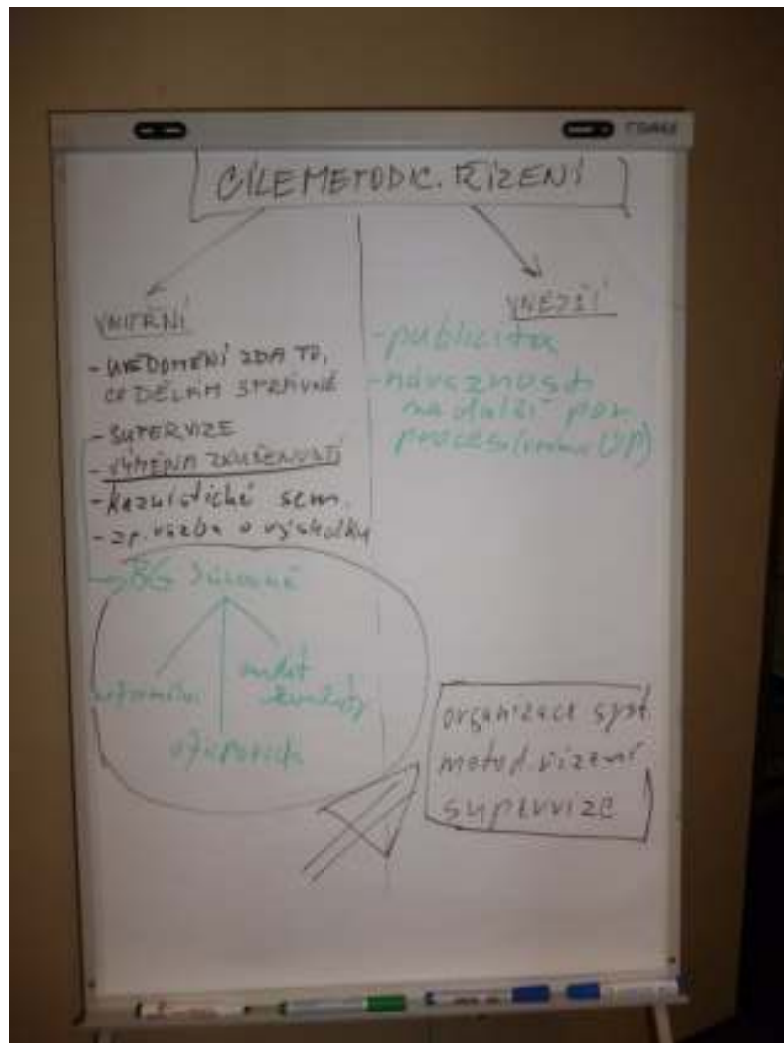 CÍLE METODIC. ŘÍZENÍ
VNITŘNÍ
- UVĚDOMĚNÍ ZDA TO,
CO DĚLÁM SPRÁVNĚ
- SUPERVIZE
- VÝMĚNA ZKUŠENOSTÍ
- kazuistické sem.
- zp. vazba o výsledku
3 úrovně
audit
VNĚJŠÍ
- publicita
- návaznost
na další por.
proces (ÚP)
organizace syst.
metod. řízení
supervize